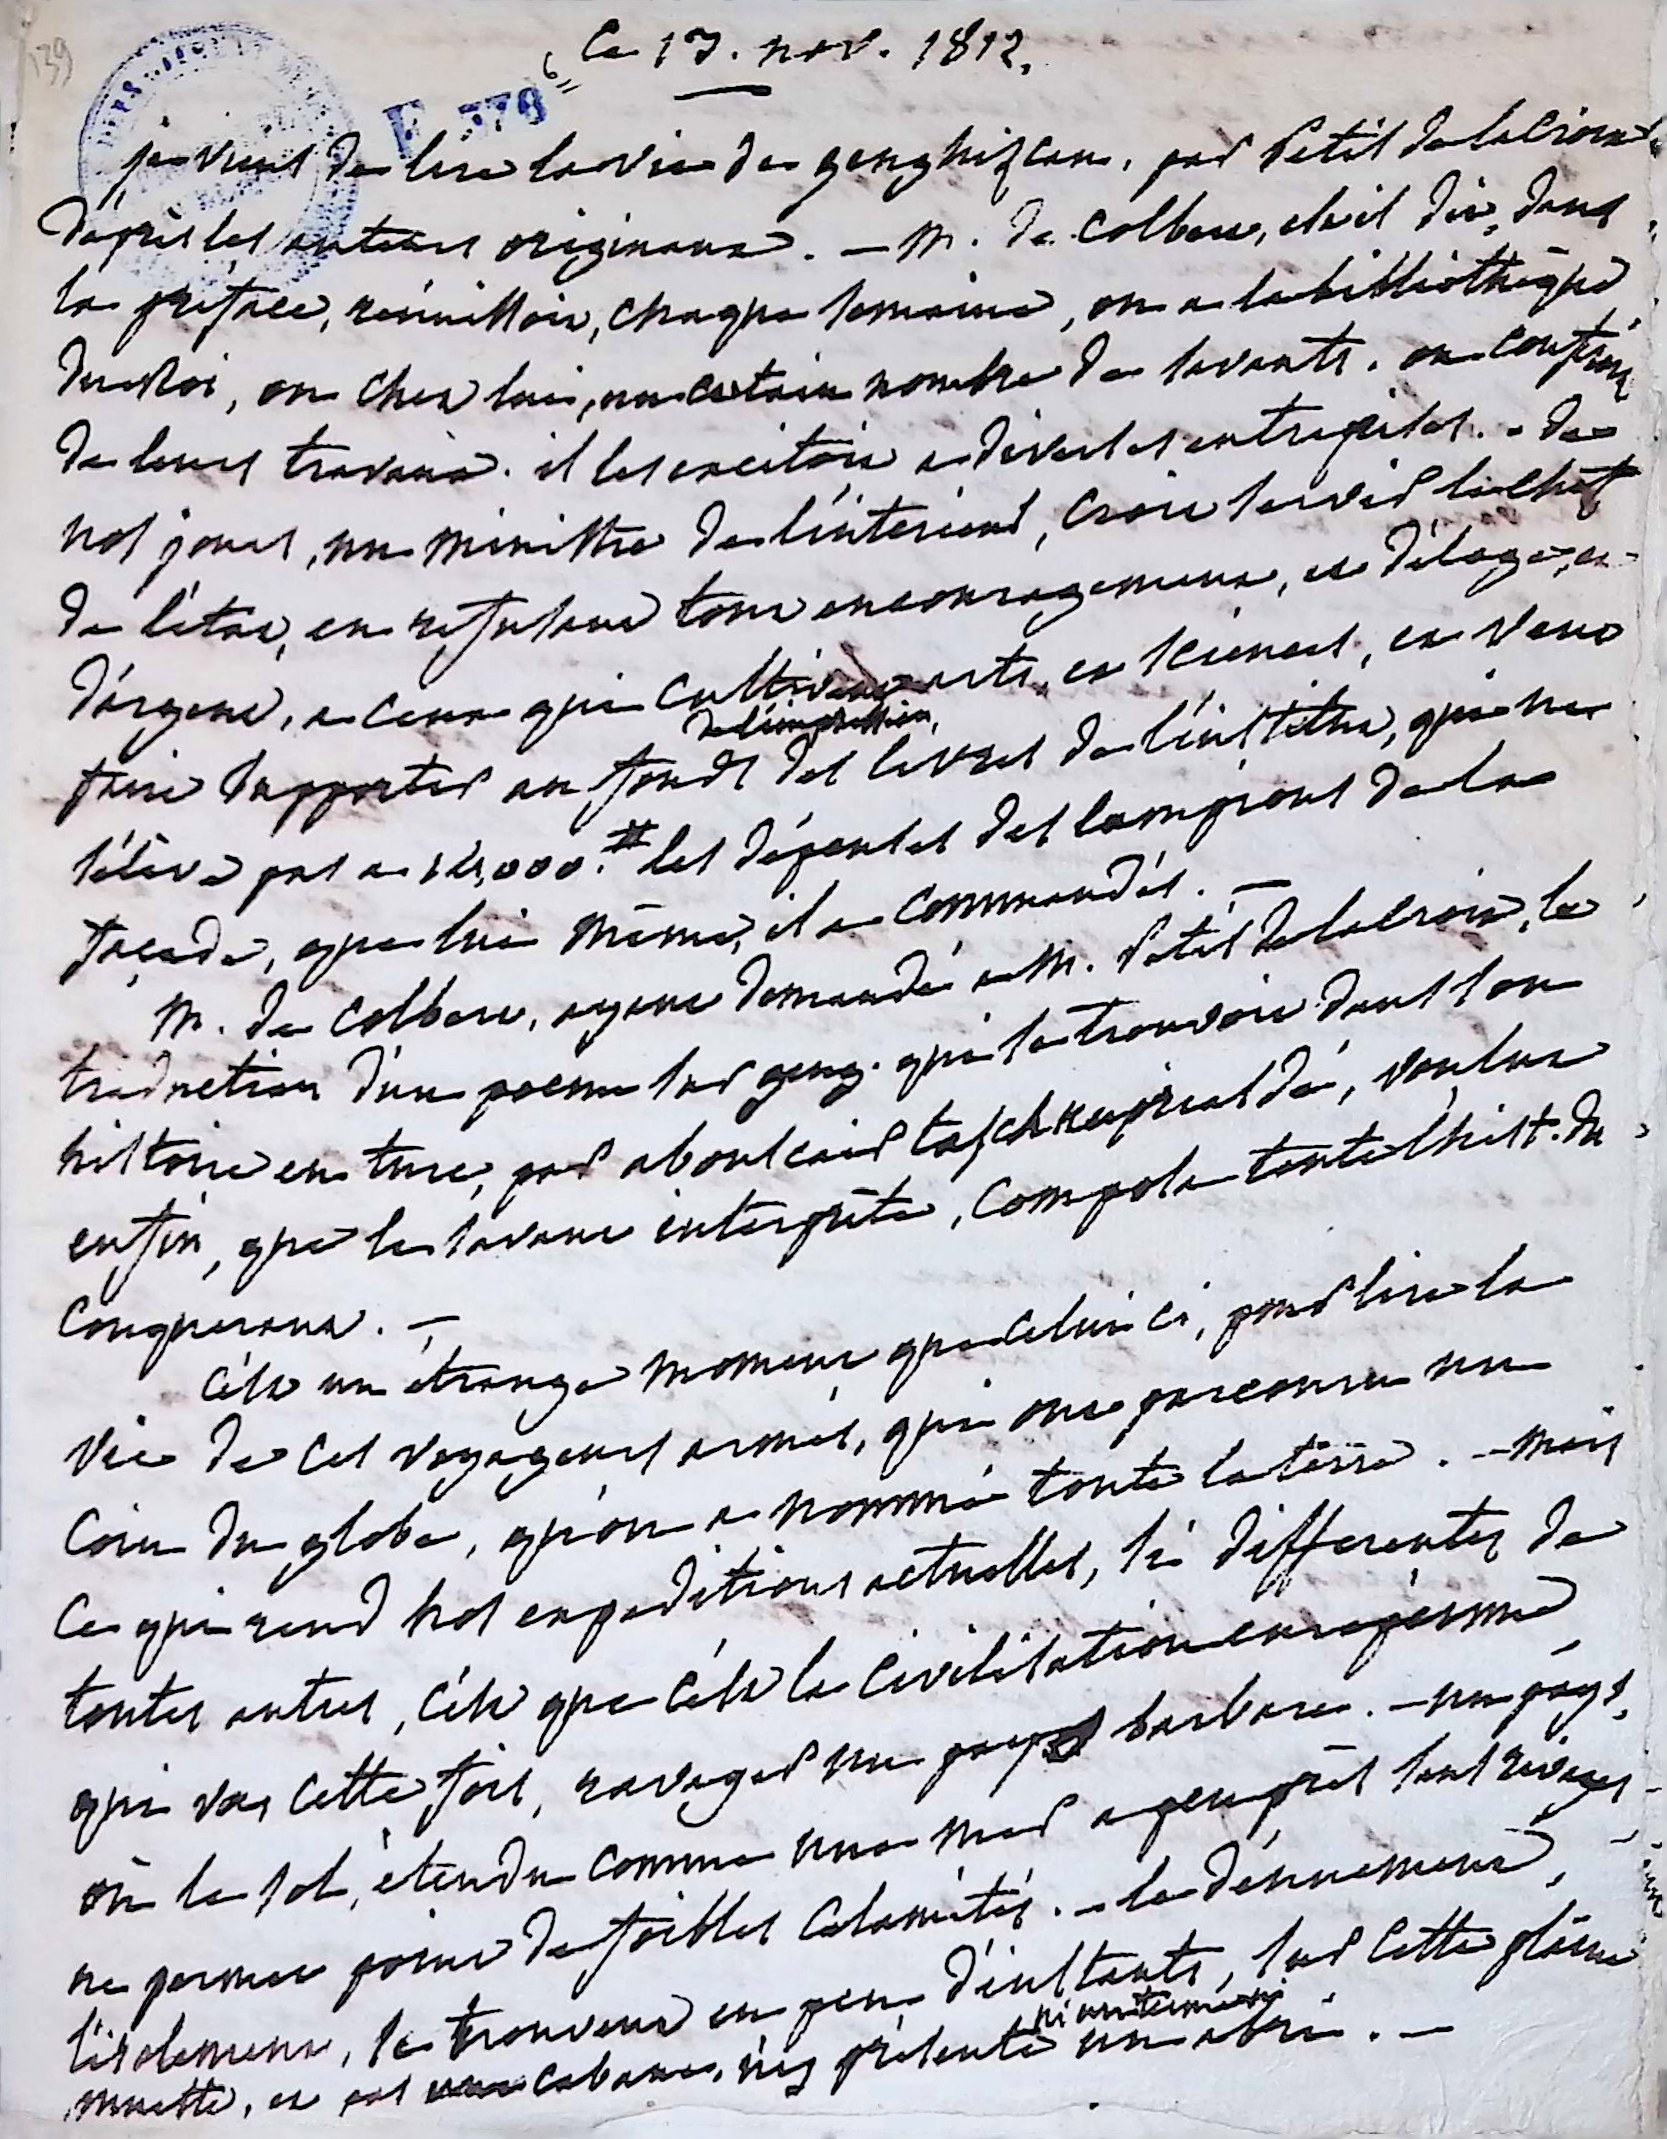 139
Le 17. nov. 1812.
F 370
6
je viens de lire la vie de genghiscan, par Petit de la Croix
d'après les auteurs originaux. — M. de Colbert, est-il dit, dans
la préface, réunissoit, chaque semaine, ou a la bibliothèque
du Roi, ou chez lui, un certain nombre de savants. on conféroit
de leurs travaux. il les excitoit a diverses entreprises. - de
nos jours, un ministre de l'intérieur, croit servir le chef
de l'état, en refusant tout encouragement, et d'éloge, et
d'argent, a ceux qui cultivent arts, et sciences, et veut
de l'impression,
faire supporter au fonds des livres de l'institut, qui ne
s'élève pas a les dépenses des lampions de la
façade, que lui même, il a commandés. —
M. de Colbert, ayant demandé a M. Petit de la Croix, la
traduction d'un poeme sur geng. qui se trouvoit dans son
histoire en turc, par aboulcair taschkuprisadé, voulut
enfin, que le savant interprète, composa toute l'hist. du
conquerant. —
C'est un étrange moment que celui ci, pour lire la
vie de ces voyageurs armés, qui ont parcouru un
coin du globe, qu'on a nommé toute la terre. — mais
ce qui rend nos expeditions actuelles, si differentes de
toutes autres, c'est que c'est la civilisation européenne
qui va, cette fois, ravager un pays barbare. — un pays,
où le sol, étendu comme une mer a peu près sans rivages
ne permet point de foibles calamités. — le dénuement,
l'isolement, se trouvent en peu d'instants, sur cette plaine
ni un terme ni
muette, et pas une cabane, n'y présente un abri. —